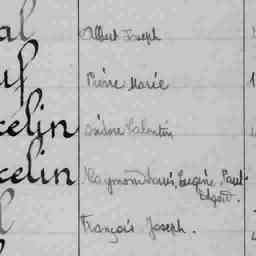 al Albert Joseph
uf Pierre Marie
celin Isidore Valentin
celin Raymond Louis, Eugène, Paul
Edgard.
l François Joseph.